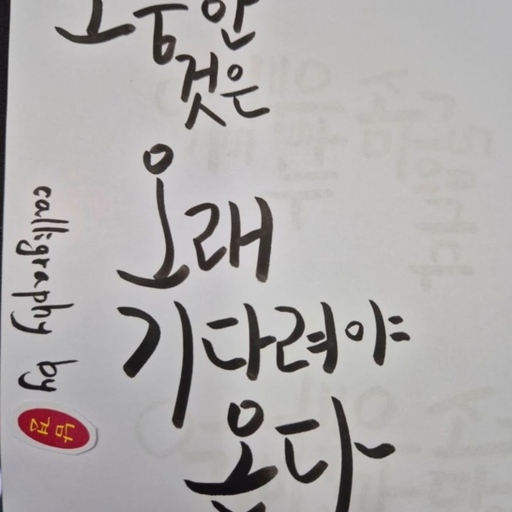 것은
오래
기다려야
온다
calligraphy by
남
겸